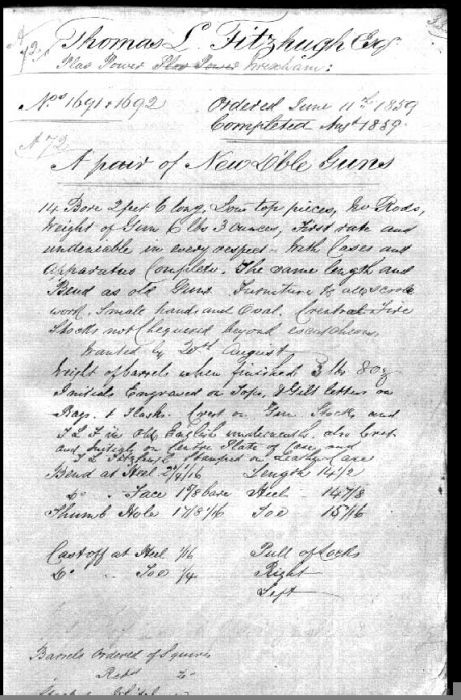 Thomas L. Fitzhugh Esq
Plas Power Plas Power Wrexham:
Nos 1691 & 1692 Ordered June 11th 1859
Completed Augt 1859
A 72
A pair of New D'ble Guns
14 Bore 2 feet 6 long, Low top pieces, No Rods,
Weight of Gun 6 lbs 3 ounces, First rate and
undeniable in every respect - With Cases and
Apparatus Complete. The same length and
Bend as old Guns. Furniture & all scroll
work. Small hand, and Oval. Central Fire
Stocks not Chequered beyond escutcheons.
Wanted by 20th August
Weight of barrels when finished 3 lbs 8 oz
Initials Engraved on Tops, & Gilt letters on
Bags & Flasks. Crest on Gun Stocks and
T L F in Old English underneath. also Crest
and Initials on Centre Plate of Case and
T L Fitzhugh Stamped on Leather Case
Bend at Heel 2 1/16 Length 14 1/2
Do . Face 1 7/8 bare Heel - 14 7/8
Thumb Hole 1 13/16 Toe 15 1/16
Cast off at Heel 1/16 Pull of Locks
Do .. Toe 1/4 Right
Left
Barrels Ordered of Squires